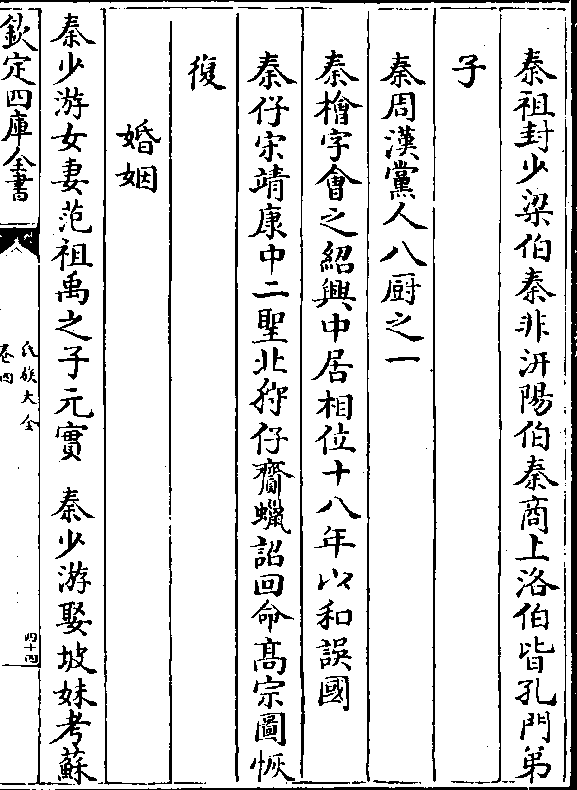 秦祖封少梁伯秦非汧陽伯秦商上洛伯皆孔門弟
子
秦周漢黨人八厨之一
秦檜字會之紹興中居相位十八年以和誤國
秦仔宋靖康中二聖北狩仔齎蠟詔回命髙宗圖恢
復
婚姻
秦少游女妻范祖禹之子元實　秦少游娶坡妹考蘇
欽定四庫全書
氏族大全
卷四
四十四